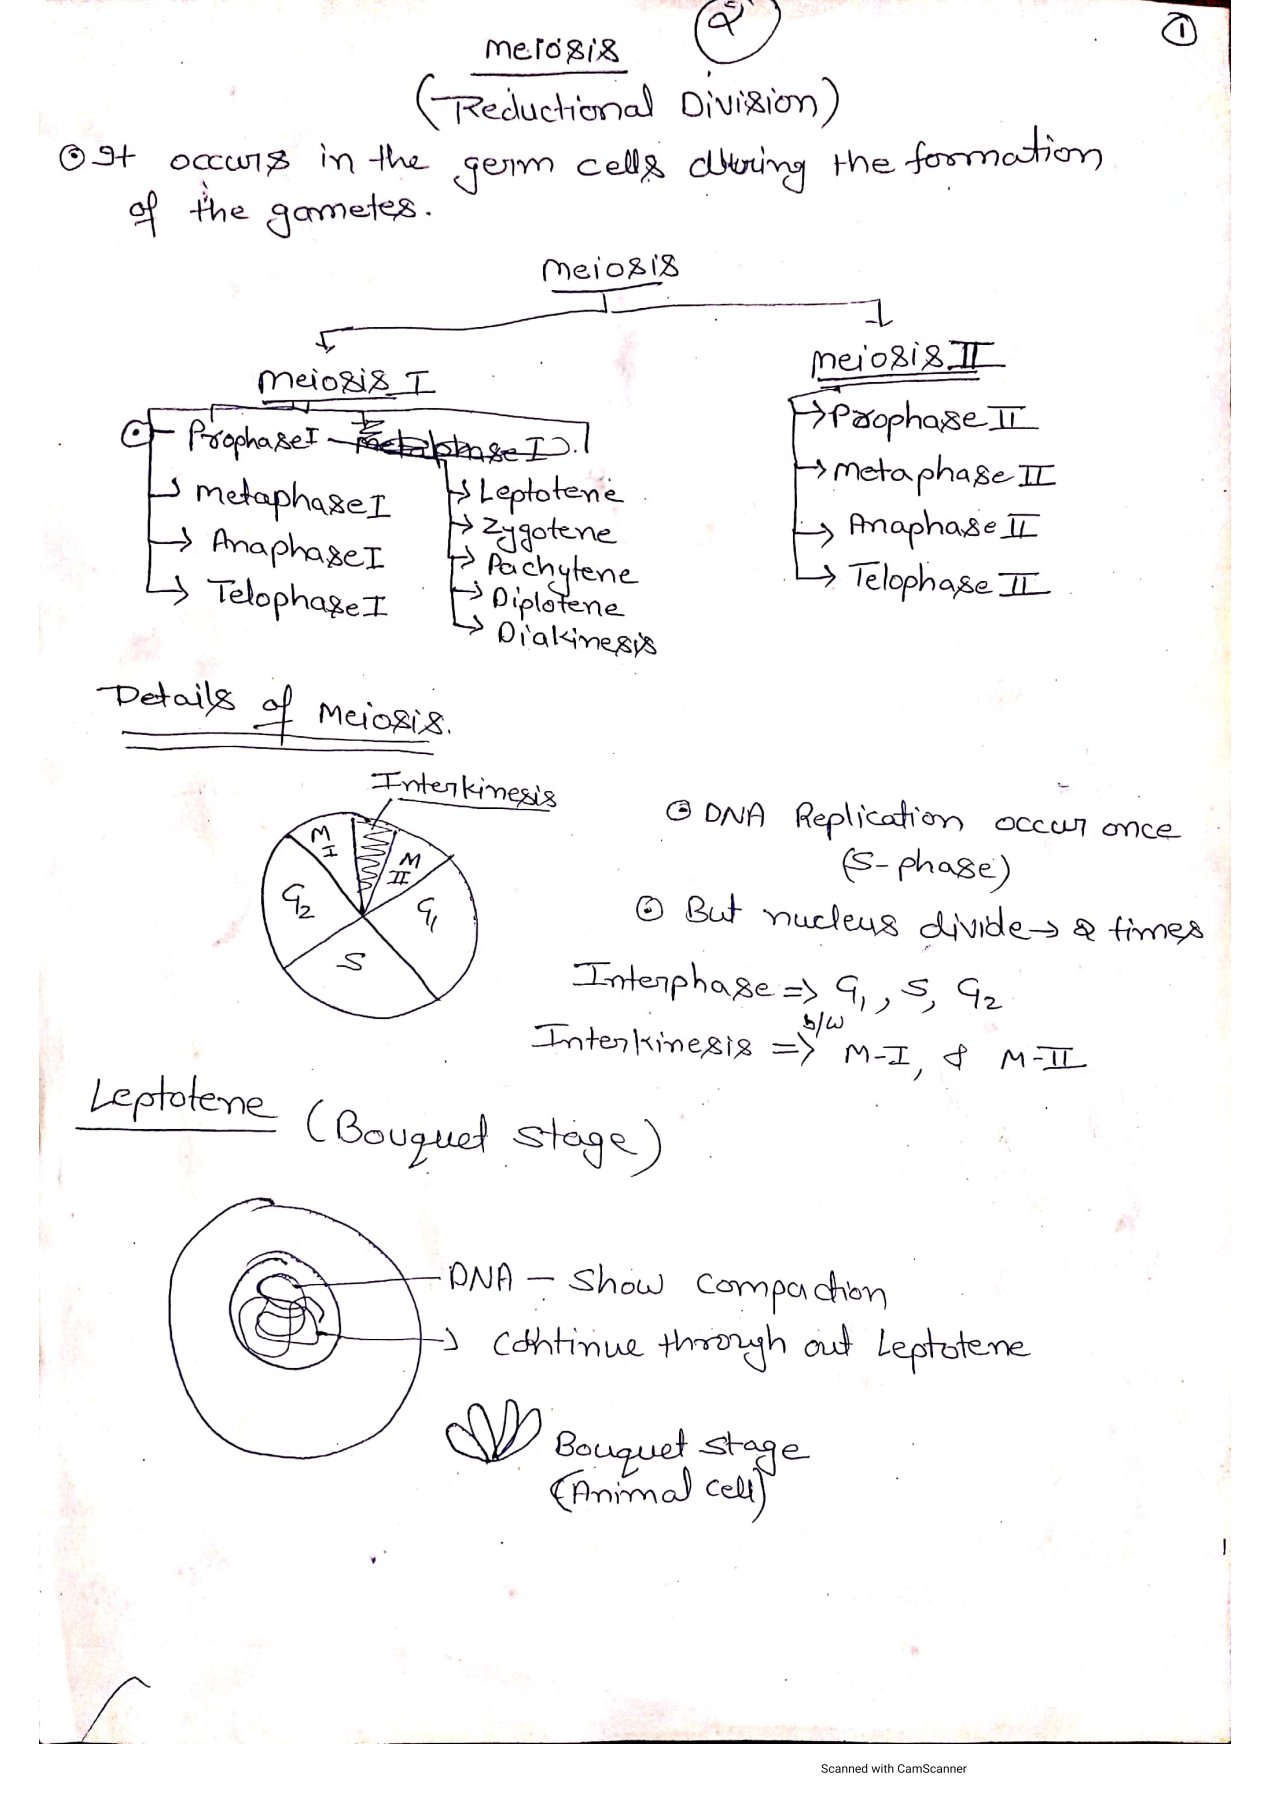 2
1
Meiosis
(Reductional Division)
It occurs in the germ cells during the formation
of the gametes.
Meiosis
Meiosis I
Prophase I - Metaphase I
Metaphase I
Anaphase I
Telophase I
Leptotene
Zygotene
Pachytene
Diplotene
Diakinesis
Meiosis II
Prophase II
Metaphase II
Anaphase II
Telophase II
Details of Meiosis.
Interkinesis
M I
M II
G2
G1
S
DNA Replication occur once
(S-phase)
But nucleus divide → 2 times
Interphase => G1, S, G2
Interkinesis => b/w M-I, & M-II
Leptotene (Bouquet stage)
DNA - Show compaction
→ Continue through out Leptotene
Bouquet stage
(Animal cell)
1
Scanned with CamScanner